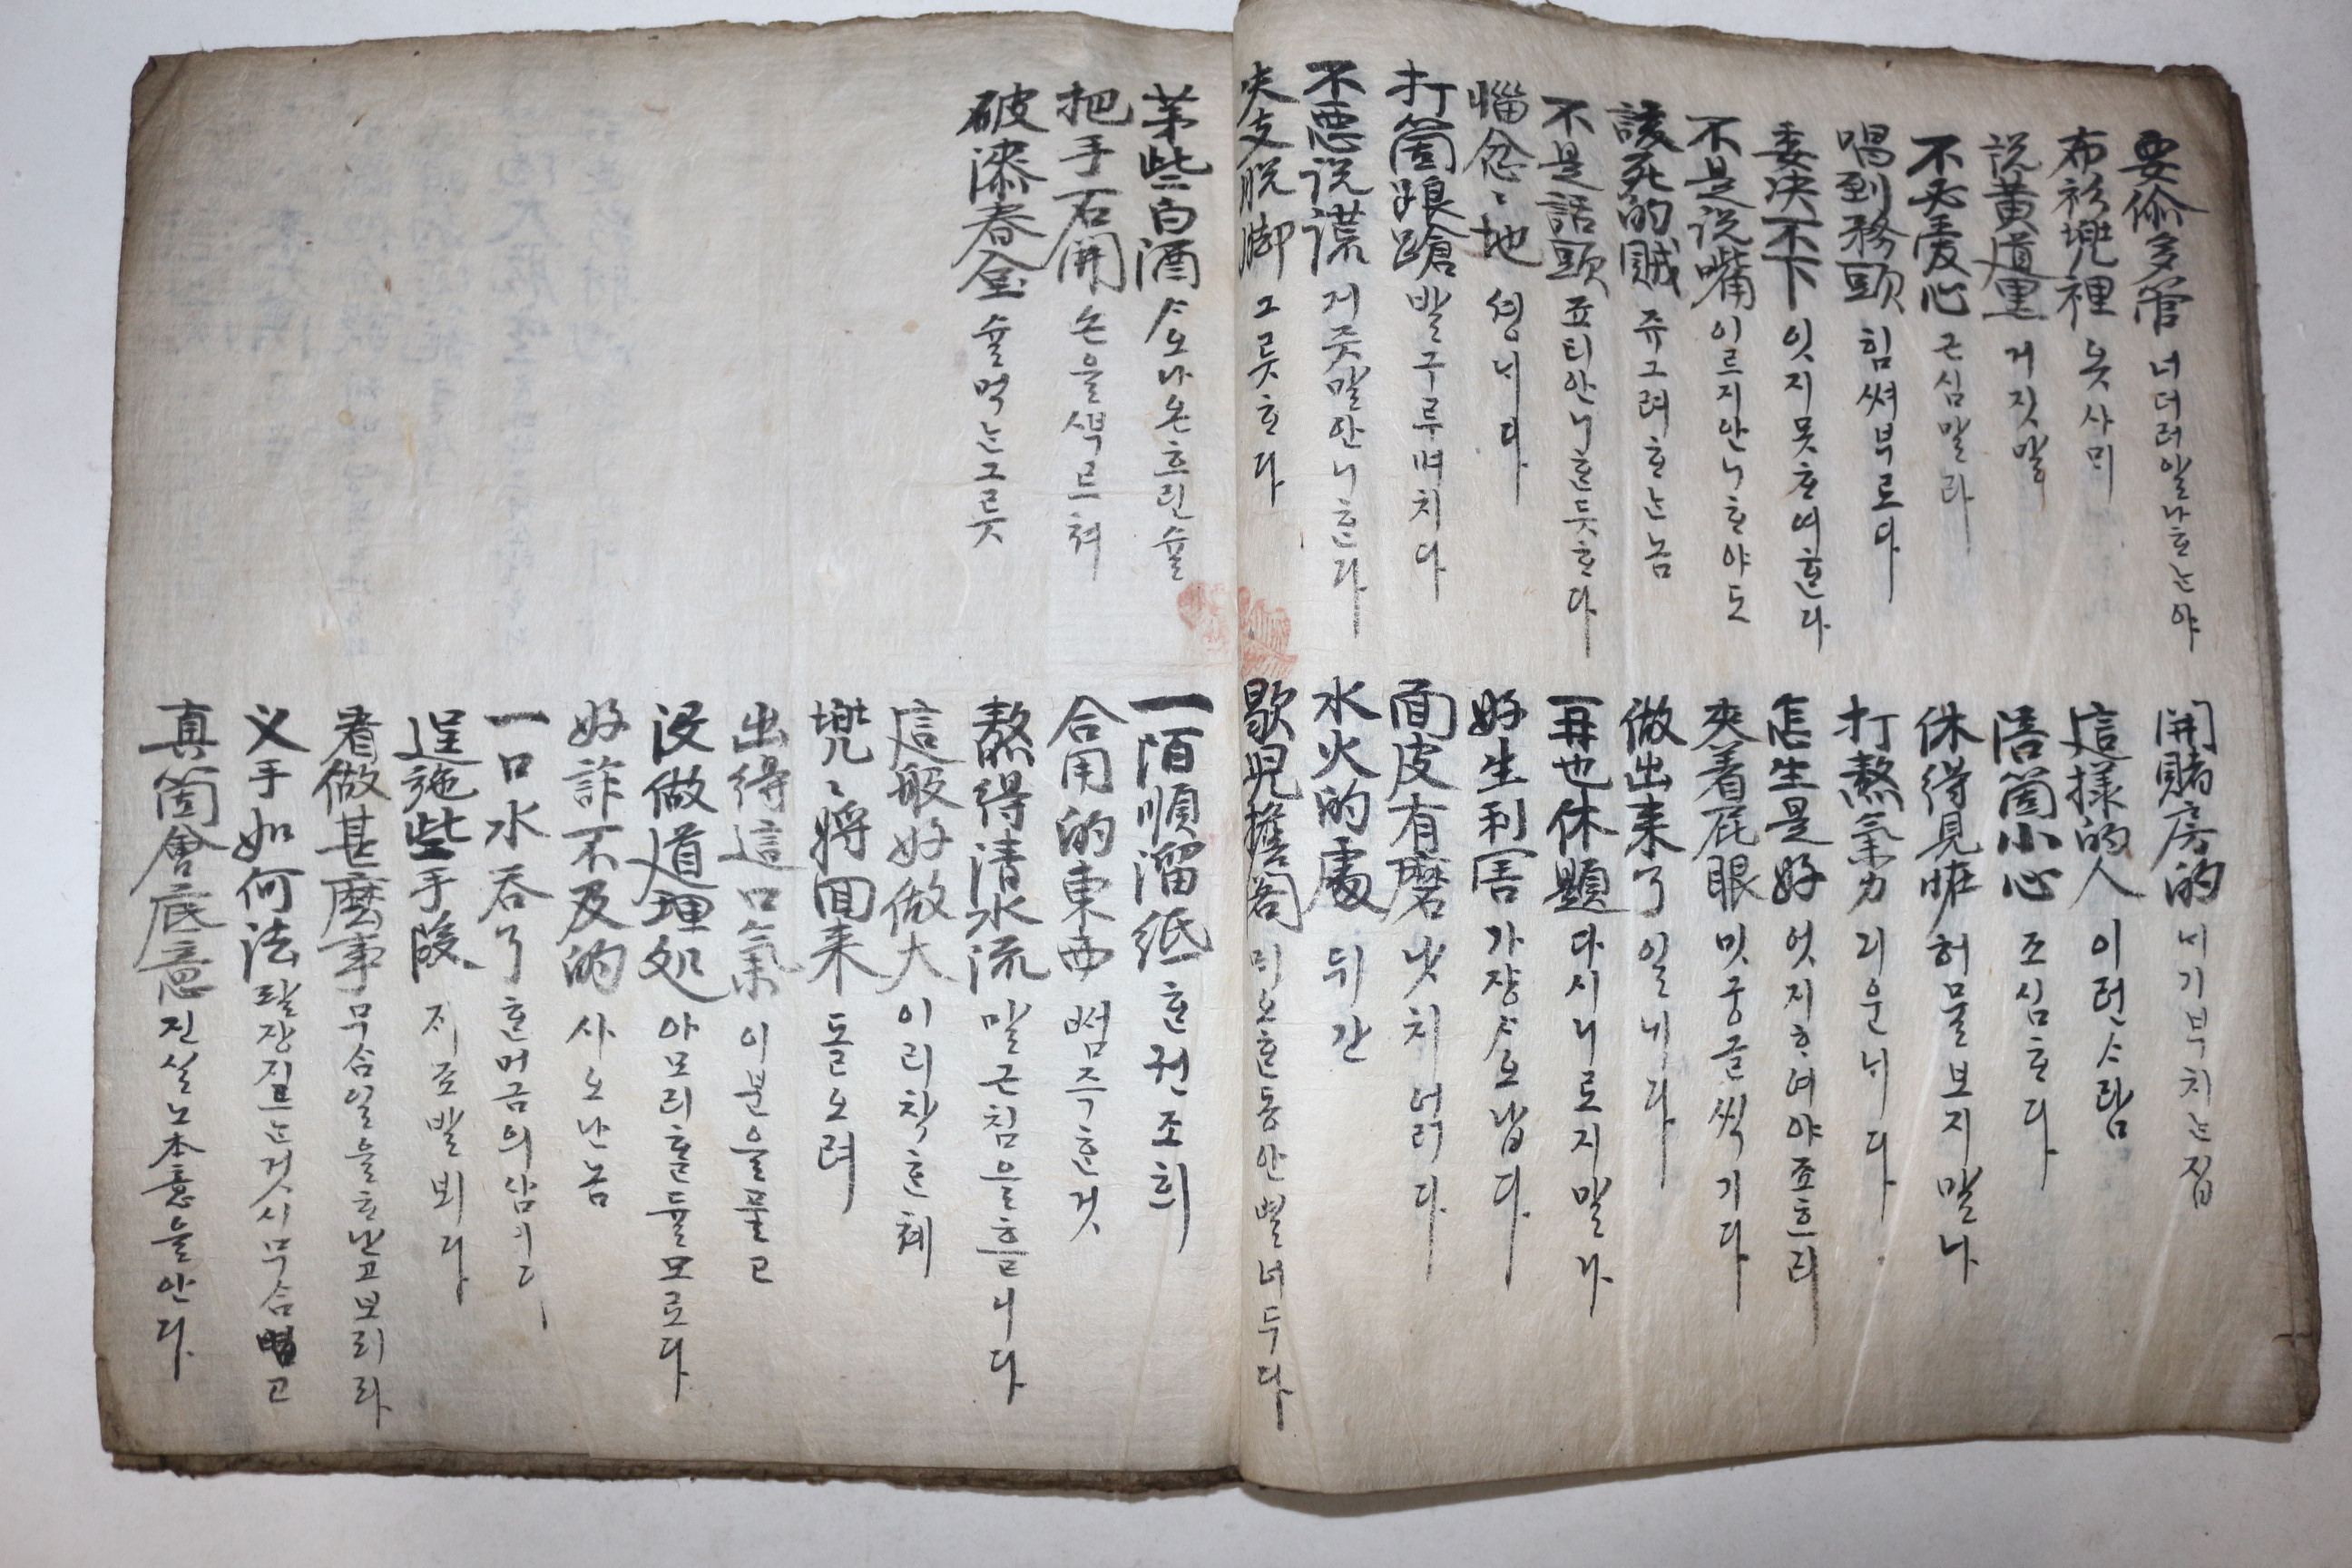 要偷多管 너더러알나ᄒᆞᄂᆞ야
布衫兜裡 옷사ᄆᆡ
説黃道黑 거짓말
不必憂心 근심말라
唱到務頭 힘써부르다
委决不下 잇지못ᄒᆞ여ᄒᆞᆫ다
不是说嘴 이르지안니ᄒᆞ야도
該死的賊 쥬그려ᄒᆞᄂᆞᆫ놈
不是話頭 죠티안니ᄒᆞᆫ듯ᄒᆞ다
惱忿〻地 셩ᄂᆡ다
打箇踉蹌 발구루며치다
不惡説謊 거즛말안니ᄒᆞᆫ다
失支脱脚 그릇ᄒᆞ다
開賭房的 ᄂᆡ기부치ᄂᆞᆫ집
這樣的人 이런ᄉᆞ람
陪箇小心 조심ᄒᆞ다
休得見㤰 허물보지말나
打熬氣力 긔운ᄂᆡ다
怎生是好 엇지ᄒᆞ여야죠흐랴
夾着屁眼 밋궁글ᄶᅵ기다
做出来了 일ᄂᆡ다
再也休題 다시니로지말나
好生利害 가장ᄉᆞ오납다
面皮有磨 낫치
水火的處 뒤간
歇児擔閣 ᄒᆞᆫ동안
茅些白酒 ᄉᆞ오나온흐린슐
把手石開 손을
破漆春金 슐먹ᄂᆞᆫ그릇
一陌順溜紙 ᄒᆞᆫ권조희
合用的東西 ᄡᅥᆷ즉ᄒᆞᆫ것
熬得清水流 말근침을흘니다
這般好做大 이리착ᄒᆞᆫ쳬
兜〻將回来 돌오려
出得這口氣 이분을풀고
沒做道理処 아모리ᄒᆞᆯ쥴모르다
好詐不及的 사오난놈
一口水吞了 ᄒᆞᆫ머금의ᄉᆞᆷ기다
逞施些手段 ᄌᆡ조발뵈다
看做甚麽事 무슴일을ᄒᆞ난고보리라
义手如何法 팔장지르ᄂᆞᆫ것시무슴법고
真箇會底意 진실노本意을안다